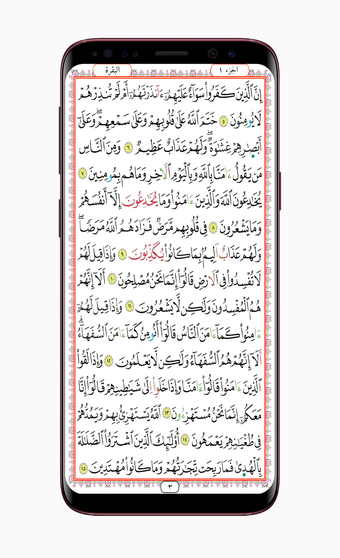 البقرة
الجزء ١
إِنَّ ٱلَّذِينَ كَفَرُواْ سَوَآءٌ عَلَيْهِمُۥٓ ءَآنذَرْتَهُمُۥٓ أَمْ لَمْ تُنذِرْهُمْ
لَا يُومِنُونَ ٥ خَتَمَ ٱللَّهُ عَلَىٰ قُلُوبِهِمْ وَعَلَىٰ سَمْعِهِمْ وَعَلَىٰٓ
أَبْصَٰرِهِمْ غِشَٰوَةٌ وَلَهُمْ عَذَابٌ عَظِيمٌ ٦ وَمِنَ ٱلنَّاسِ
مَنْ يَقُولُ ءَامَنَّا بِٱللَّهِ وَبِٱلْيَوْمِ ٱلَاخِرِ وَمَا هُم بِمُومِنِينَ ٧
يُخَٰدِعُونَ ٱللَّهَ وَٱلَّذِينَ ءَامَنُواْ وَمَا يُخَٰدِعُونَ إِلَّآ أَنفُسَهُمْ
وَمَا يَشْعُرُونَ ٨ فِي قُلُوبِهِم مَّرَضٌ فَزَادَهُمُ ٱللَّهُ مَرَضًا
وَلَهُمْ عَذَابٌ اَلِيمٌ بِمَا كَانُواْ يُكَذِّبُونَ ٩ وَإِذَا قِيلَ لَهُمْ
لَا تُفْسِدُواْ فِي ٱلَارْضِ قَالُوٓاْ إِنَّمَا نَحْنُ مُصْلِحُونَ ١٠ أَلَآ إِنَّهُمْ
هُمُ ٱلْمُفْسِدُونَ وَلَٰكِن لَّا يَشْعُرُونَ ١١ وَإِذَا قِيلَ لَهُمُۥٓ
ءَامِنُواْ كَمَآ ءَامَنَ ٱلنَّاسُ قَالُوٓاْ أَنُومِنُ كَمَآ ءَامَنَ ٱلسُّفَهَآءُ
أَلَآ إِنَّهُمْ هُمُ ٱلسُّفَهَآءُ وَلَٰكِن لَّا يَعْلَمُونَ ١٢ وَإِذَا لَقُواْ
ٱلَّذِينَ ءَامَنُواْ قَالُوٓاْ ءَامَنَّا وَإِذَا خَلَوِاْ اِلَىٰ شَيَٰطِينِهِمْ قَالُوٓاْ إِنَّا
مَعَكُمُۥٓ إِنَّمَا نَحْنُ مُسْتَهْزِءُونَ ١٣ ٱللَّهُ يَسْتَهْزِئُ بِهِمْ وَيَمُدُّهُمْ
فِي طُغْيَٰنِهِمْ يَعْمَهُونَ ١٤ أُوْلَٰٓئِكَ ٱلَّذِينَ ٱشْتَرَوُاْ ٱلضَّلَٰلَةَ
بِٱلْهُدَىٰ فَمَا رَبِحَت تِّجَٰرَتُهُمْ وَمَا كَانُواْ مُهْتَدِينَ ١٥
٣